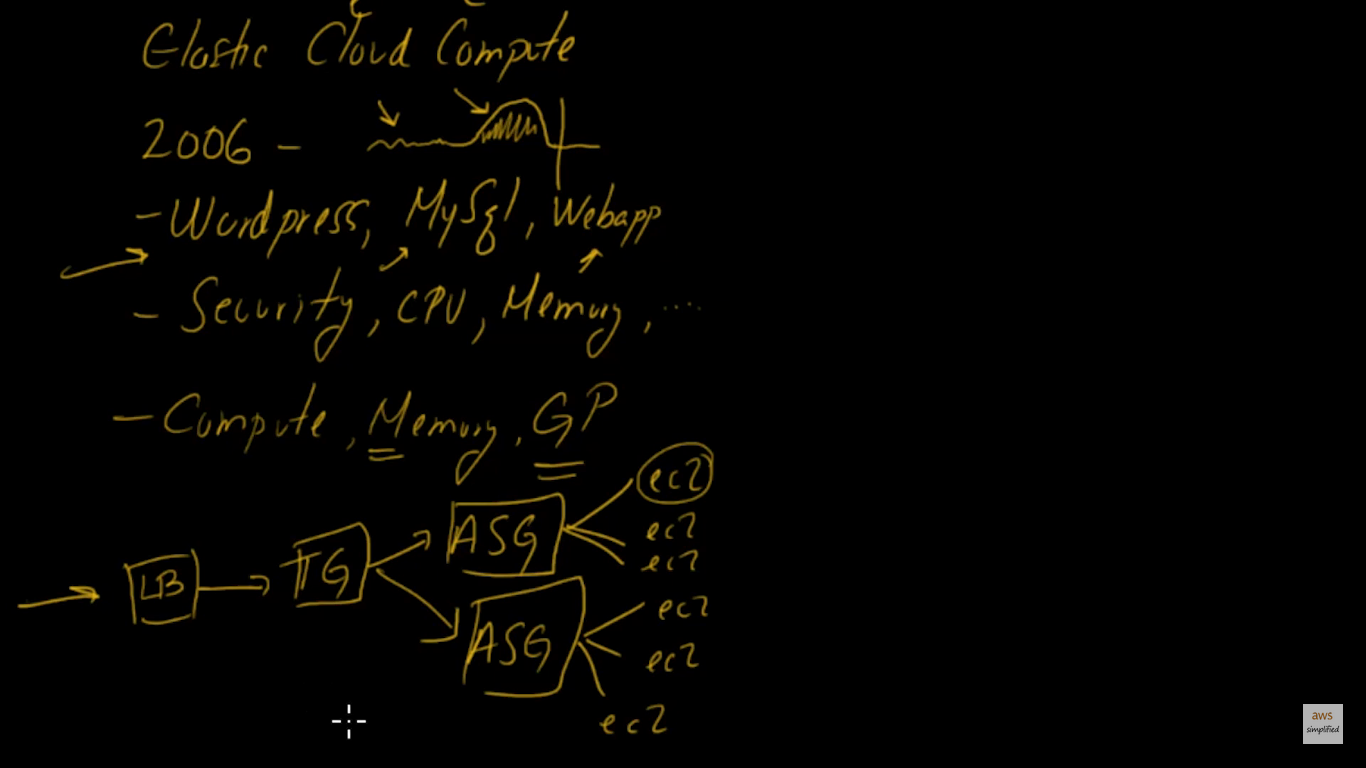 Elastic Cloud Compute
2006 -
- Wordpress, MySql, Webapp
- Security, CPU, Memory, ....
- Compute, Memory, GP
LB
TG
ASG
ec2
ec2
ec2
ASG
ec2
ec2
ec2
aws
simplified